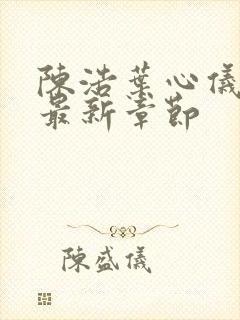 陳浩葉心儀
最新章節
陳盛儀